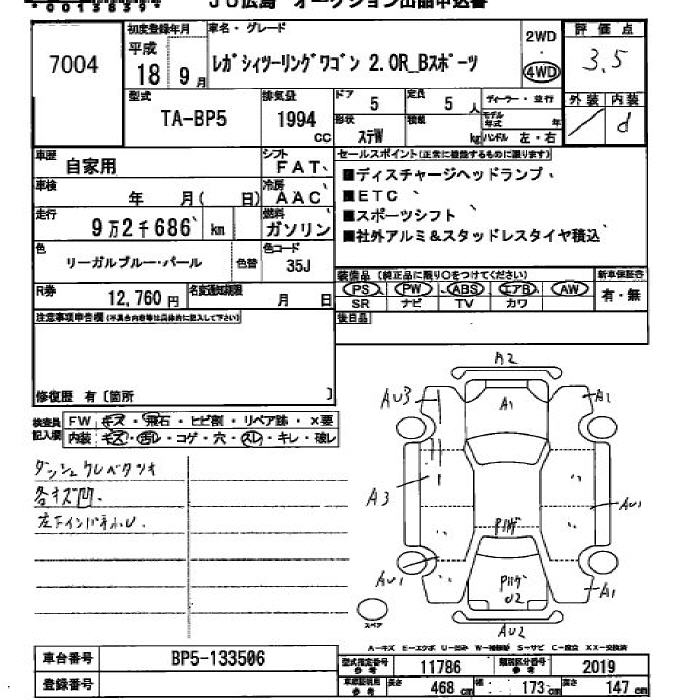 JU広島 オークション出品申込書
7004
初度登録年月
平成
18年9月
車名・グレード
レガシィツーリングワゴン 2.0R_Bスポーツ
2WD
4WD
評価点
3.5
外装 内装
d
型式
TA-BP5
排気量
1994
CC
ドア
5
定員
5人
ディーラー・並行
形状
ステW
積載
kg
モデル年式
年
ハンドル 左・右
車歴
自家用
シフト
FAT
車検
年 月( 日)
冷房
AAC
走行
9万2千686 km
燃料
ガソリン
色
リーガルブルー・パール
色替
色コード
35J
R券
12,760円
名変通知期限
月 日
セールスポイント(正常に機能するものに限ります)
■ディスチャージヘッドランプ
■ETC
■スポーツシフト
■社外アルミ&スタッドレスタイヤ積込
装備品 (純正品に限り○をつけてください)
PS PW ABS エアB AW
SR ナビ TV カワ
新車保証書
有・無
後日品
注意事項申告欄(不具合内容等は具体的に記入して下さい)
修復歴 有〔箇所 〕
検査員記入欄
FW キズ・飛石・ヒビ割・リペア跡・X要
内装 キズ・汚レ・コゲ・穴・スレ・キレ・破レ
ダッシュクレベタツキ
各キズ凹.
A2
AU3
A1
A1
A3
AU1
Pハゲ
AU1
Pハゲ
U2
A1
AU2
スペア
A-キズ E-エクボ U-凹み W-補修跡 S-サビ C-腐食 XX-交換済
車台番号
BP5-133506
登録番号
型式指定番号
参考
11786
類別区分番号
参考
2019
車検証明用
参考
長さ
468 cm
幅
173 cm
高さ
147 cm